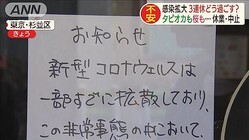 ANN
不安
感染拡大 3連休どう過ごす?
タピオカも桜も…休業・中止
東京・杉並区
きょう
お知らせ
新型コロナウェルスは
一部すでに拡散しており、
この非常事態の中において